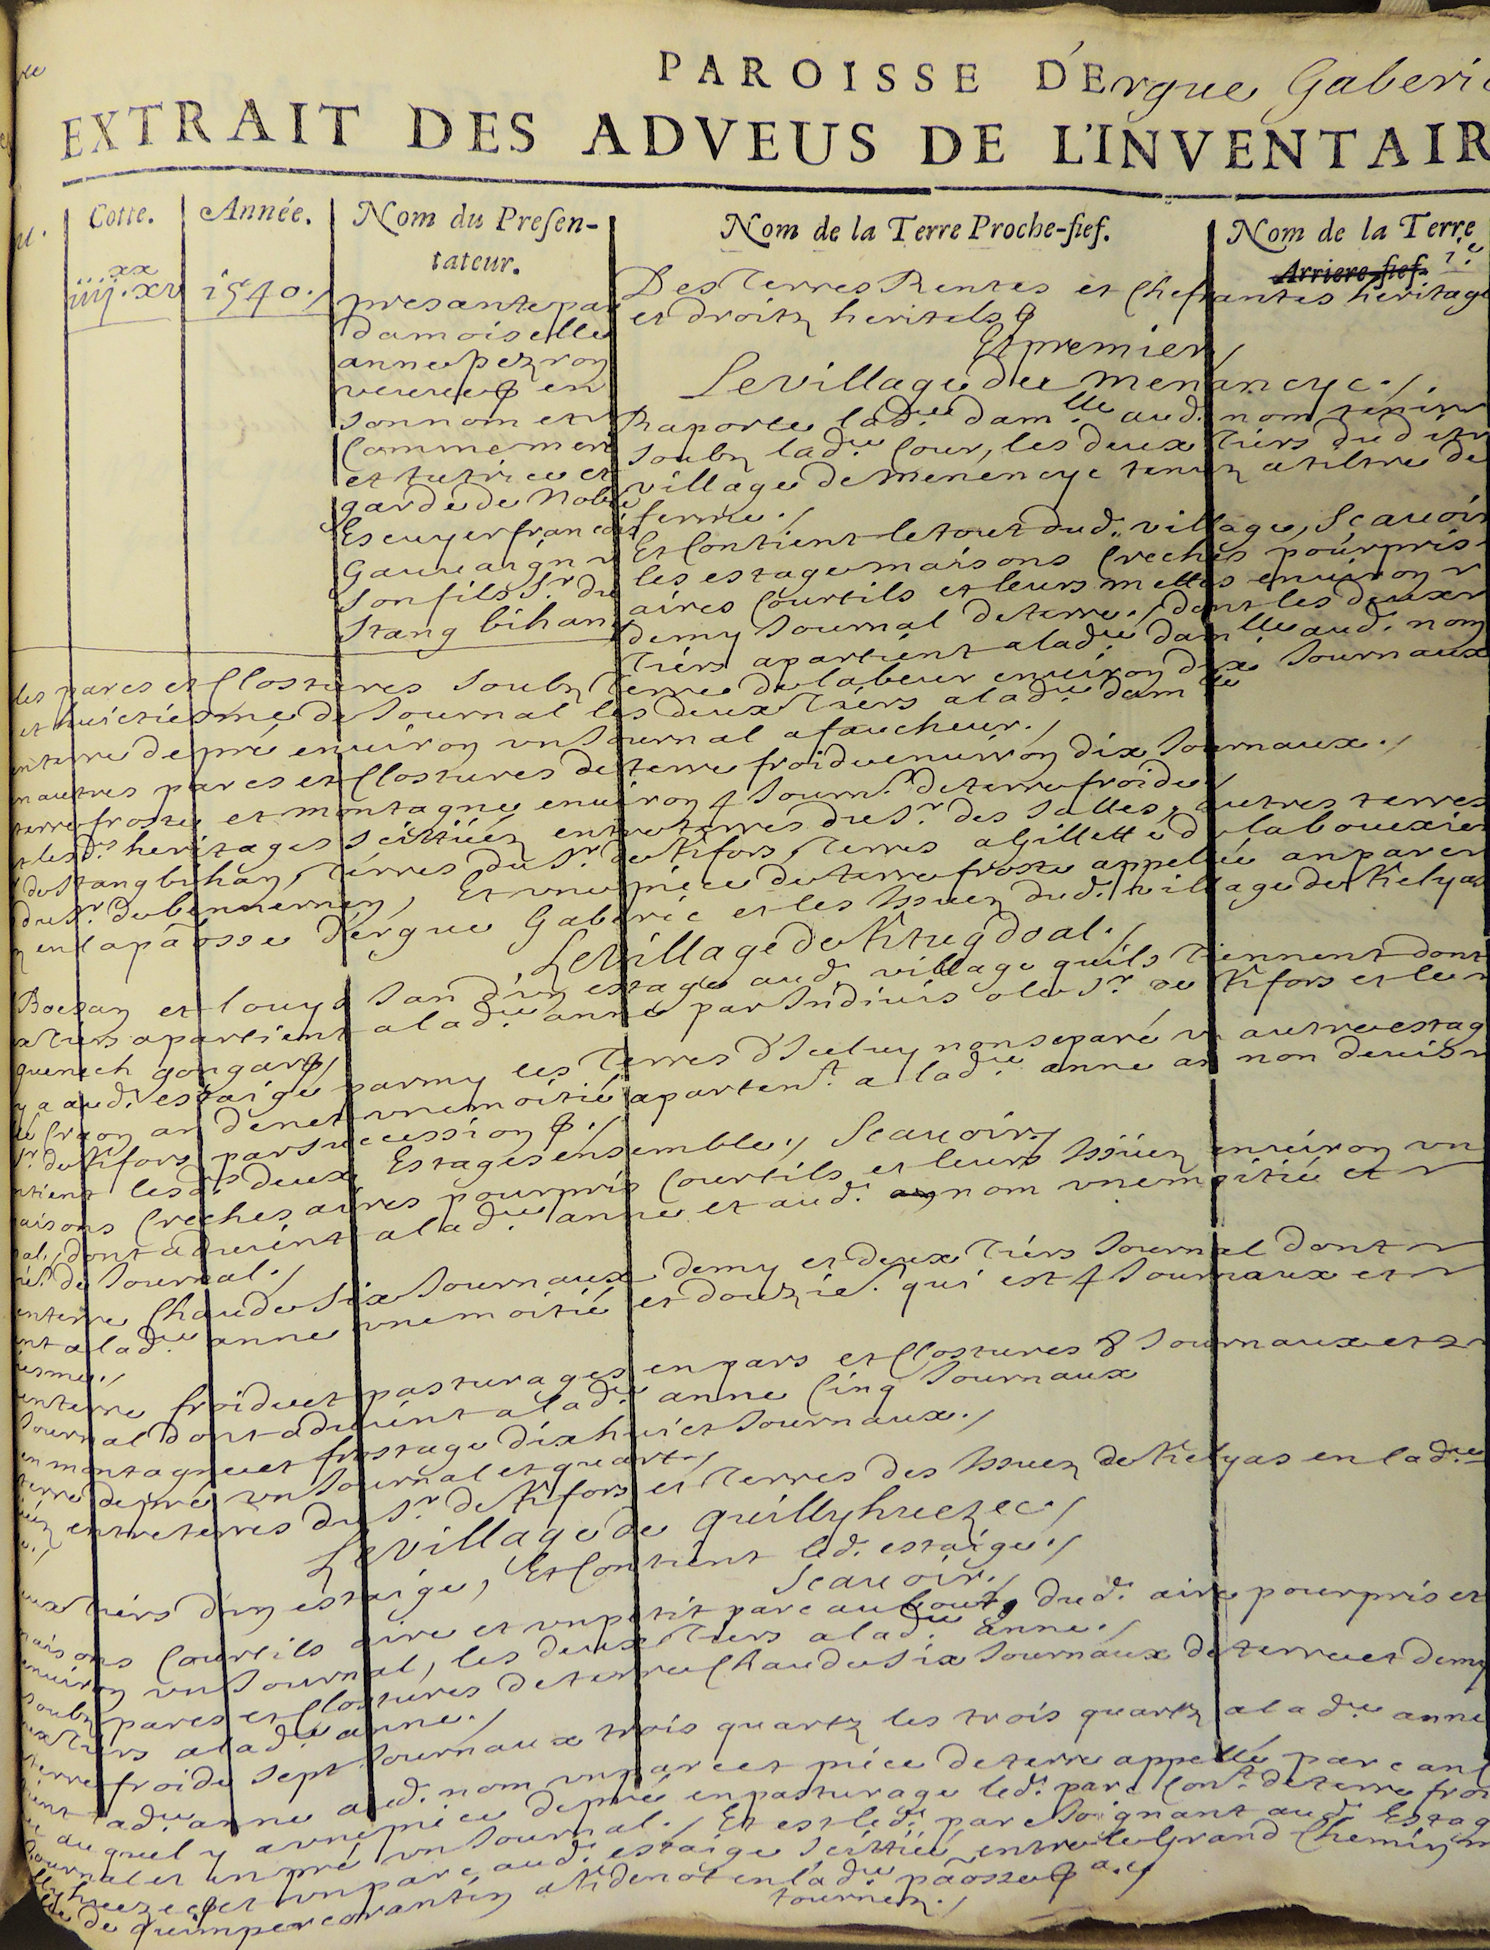 PAROISSE D'Ergue Gaberic
EXTRAIT DES ADVEUS DE L'INVENTAIR
Cotte.
Année.
Nom du Presen-
tateur.
Nom de la Terre Proche-fief.
Nom de la Terre
Arriere-fief.
iiij.xx xv
1540./
presante par
damoiselle
anne pezron
veufve en
son nom et
Comme mere
et tutrice et
garde de Noble
Escuyer francois
Gauvaign
son fils Sr. du
Stang bihan
Des Terres Rentes et Chefrantes heritage
et droitz heritels
Et premier /
Le village du menancyc ./.
Raporte lad.e dam.lle aud. nom tenir
soubz lad.e Cour, les deux Tiers dudit
village de Menencyc tenuz a tiltre de
ferme ./
Et Contient le tout dud. village, Scavoir
les estage maisons Creches pourpris
aires Courtils et leurs mettes environ
demy Journal de terre ./ dont les deux
Tiers apartient a lad.e dam.lle aud. nom
les parcs et Clostures soubz Terre de labeur environ dix Journaux
et huictiesme de Journal les deux Tiers a lad.e dam.lle
en terre de pré environ un Journal a faucheur ./
en autres parcs et Clostures de terre froide environ dix Journaux ./
terre froste et montagne environ 4 Journ. de terre froide /
et lesd.s heritages scittuéz entre terres du Sr. des Salles, autres terres
de Stang bihan, Terres du Sr. de Kfors, Terres a Gillette de la bouexier
du Sr. de Et une piece de terre froste appellée an parc
en la paosse d'Ergue Gaberic et les Issuez dud. village de Kelyas
Le Village de Ktregdoal ./
et louys Jan d'un estage aud. village quils Tiennent dont
Tiers apartient a lad.e anne par Indivis o le Sr. de Kfors et le
quenech gongar /
y a aud. estaige parmy les Terres d'Iceluy non separé un autre estag
an denet une moitié aparten.t a lad.e anne non devis
Sr. de Kfors par succession ./
ntient lesd.s deux Estages ensemble, Scavoir /
aisons Creches aires pourpris Courtils et leurs Issuez environ un
al, dont advient a lad.e anne et aud. nom une moitié et
de Journal ./
en terre Chaude Six Journaux demy et deux Tiers Journal dont
ent a lad.e anne une moitié et douzie. qui est 4 Journaux et
iesme ./
en terre froide et pasturages en parcs et Clostures 8 Journaux et 2
Journal dont advient a lad.e anne Cinq Journaux
en montagne et frostage dixhuict Journaux ./
terre de pré un Journal et quart /
uéz entre terres du Sr. de Kfors et Terres des Issuez de Kelyas en lad.e
Le Village de quillyhuezec /
eux tiers d'un estaige, Et Contient led. estaige ./
Scavoir ./
maisons Courtils aire et un petit parc au bout dud. aire pourpris et
environ un Journal, les deux Tiers a lad.e anne ./
soubz parcs et Clostures de terre Chaude Six Journaux de terre et demy
eux Tiers a lad.e anne ./
terre froide sept Journaux trois quartz les trois quartz a lad.e anne
tient lad.e anne aud. nom un parc et piece de terre appellé parc an
auquel y a une piece de pré en pasturage led. parc Cont. de terre froi
Journal et un pré un Journal ./ Et est led. parc Joignant aud. Estag
et un parc aud. estaige Scittué entre le Grand Chemin
de quimpercorantin a denot en lad.e paosse
tournez ./